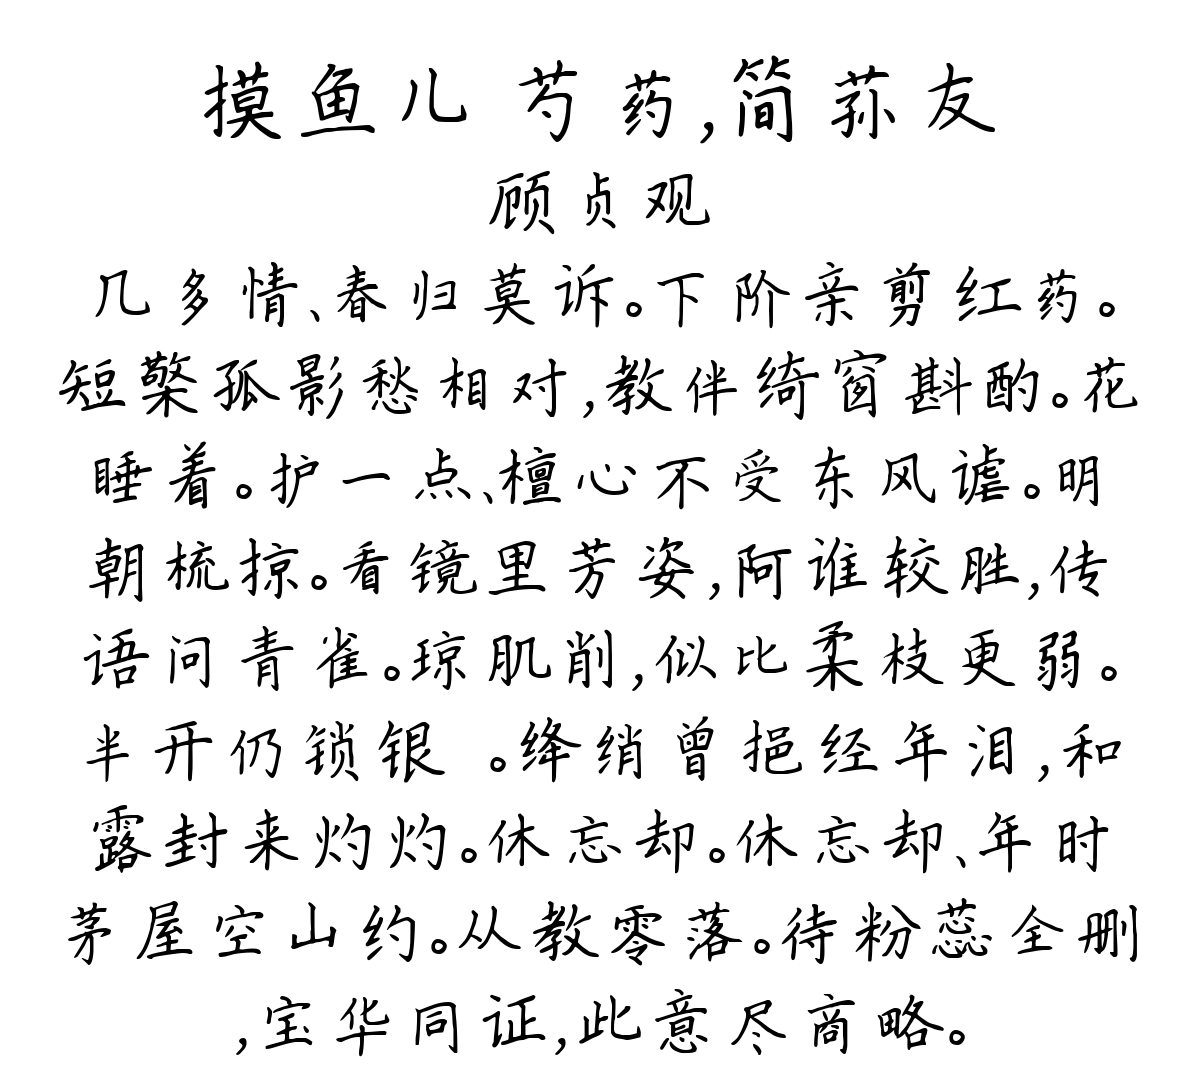 摸鱼儿 芍药,简荪友
顾贞观
几多情、春归莫诉。下阶亲剪红药。
短檠孤影愁相对,教伴绮窗斟酌。花
睡着。护一点、檀心不受东风谑。明
朝梳掠。看镜里芳姿,阿谁较胜,传
语问青雀。琼肌削,似比柔枝更弱。
半开仍锁银 。绛绡曾挹经年泪,和
露封来灼灼。休忘却。休忘却、年时
茅屋空山约。从教零落。待粉蕊全删
,宝华同证,此意尽商略。